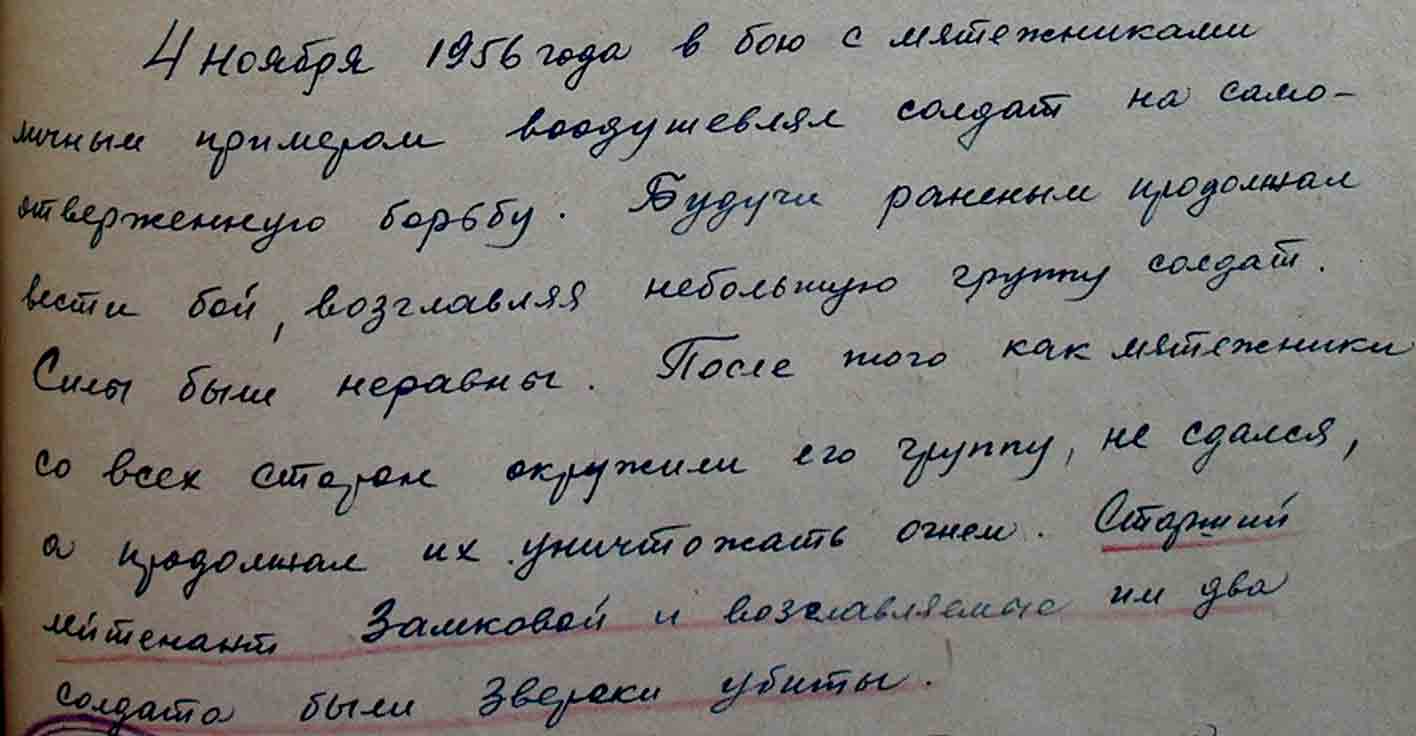 4 ноября 1956 года в бою с мятежниками
личным примером воодушевлял солдат на само-
отверженную борьбу. Будучи раненым продолжал
вести бой, возглавляя небольшую группу солдат.
Силы были неравны. После того как мятежники
со всех сторон окружили его группу, не сдался,
а продолжал их уничтожать огнем. Старший
лейтенант Замковой и возглавляемые им два
солдата были зверски убиты.